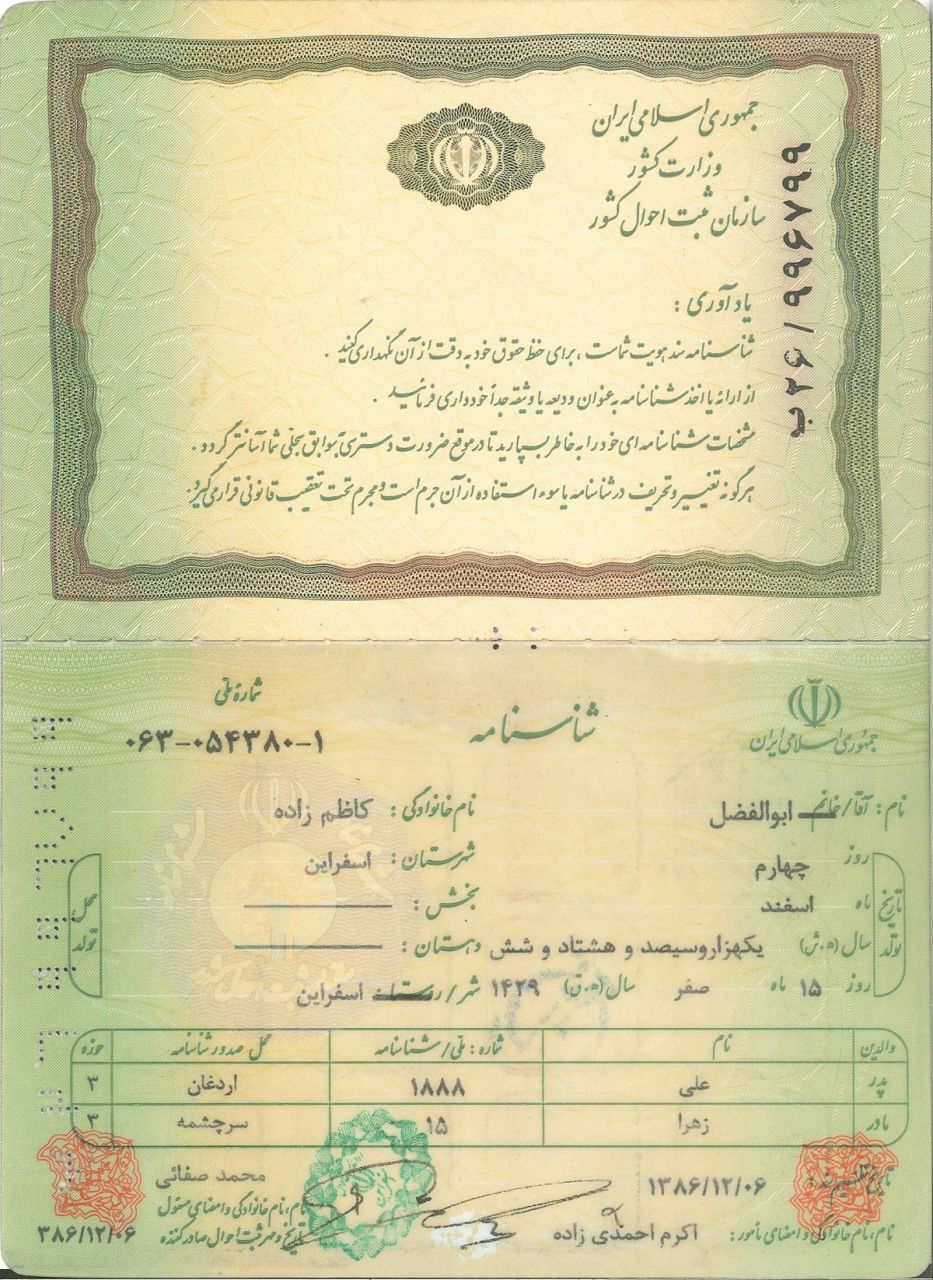 جمهوری اسلامی ایران
وزارت کشور
سازمان ثبت احوال کشور
ب۲۶/۹۹۶۷۹۹
یادآوری :
شناسنامه سند هویت شماست ، برای حفظ حقوق خود به دقت از آن نگهداری کنید .
از ارائه یا اخذ شناسنامه به عنوان ودیعه یا وثیقه جداً خودداری فرمائید .
مشخصات شناسنامه ای خود را به خاطر بسپارید تا در موقع ضرورت دسترسی بسوابق سجلی شما آسانتر گردد .
هرگونه تغییر و تحریف در شناسنامه یا سوء استفاده از آن جرم است و مجرم تحت تعقیب قانونی قرار می‌گیرد.
جمهوری اسلامی ایران
شناسنامه
شمارهٔ ملی
۰۶۳-۰۵۴۳۸۰-۱
نام : آقا/خانم ابوالفضل نام خانوادگی : کاظم زاده
تاریخ تولد
روز چهارم
ماه اسفند
سال (ه.ش) یکهزاروسیصد و هشتاد و شش
روز ۱۵ ماه صفر سال (ه.ق) ۱۴۲۹
محل تولد
شهرستان : اسفراین
بخش :
دهستان :
شهر/روستا اسفراین
والدین نام شماره : ملی/شناسنامه محل صدور شناسنامه حوزه
پدر علی ۱۸۸۸ اردغان ۳
مادر زهرا ۱۵ سرچشمه ۳
تاریخ تنظیم سند : ۱۳۸۶/۱۲/۰۶
نام، نام خانوادگی و امضای مأمور : اکرم احمدی زاده
محمد صفائی
نام، نام خانوادگی و امضای مسئول
تاریخ و مهر ثبت احوال صادرکننده
۳۸۶/۱۲/۰۶